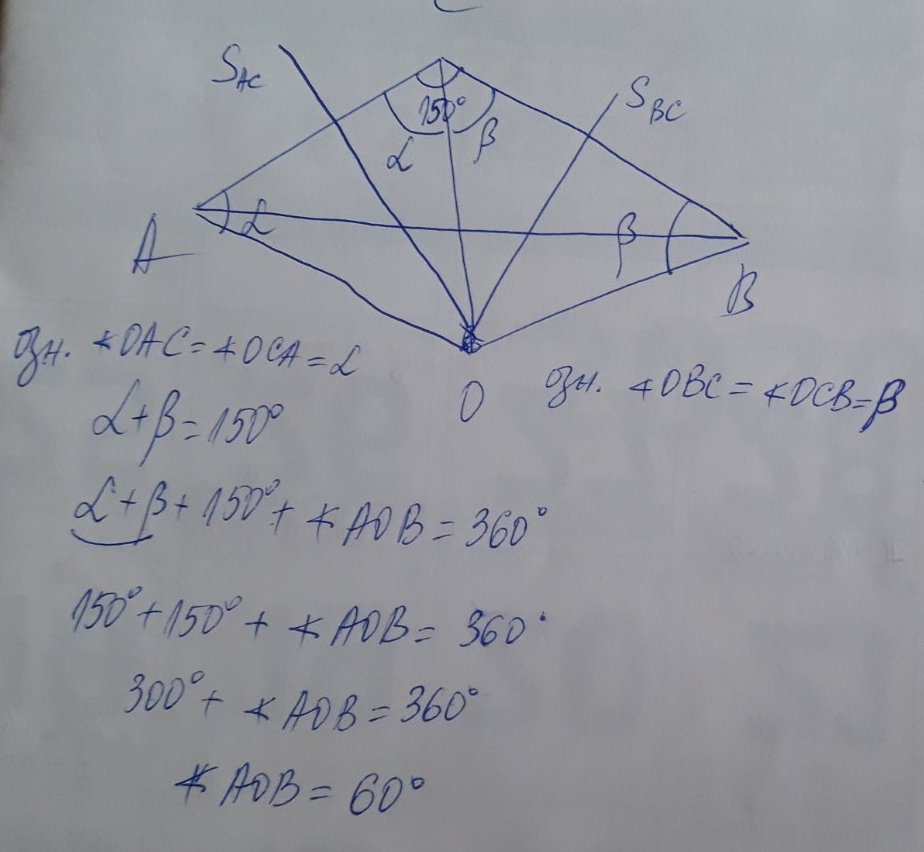 C
S_AC
S_BC
150°
α β
A α β B
O
озн. ∢OAC = ∢OCA = α
озн. ∢OBC = ∢OCB = β
α + β = 150°
α + β + 150° + ∢AOB = 360°
150° + 150° + ∢AOB = 360°
300° + ∢AOB = 360°
∢AOB = 60°